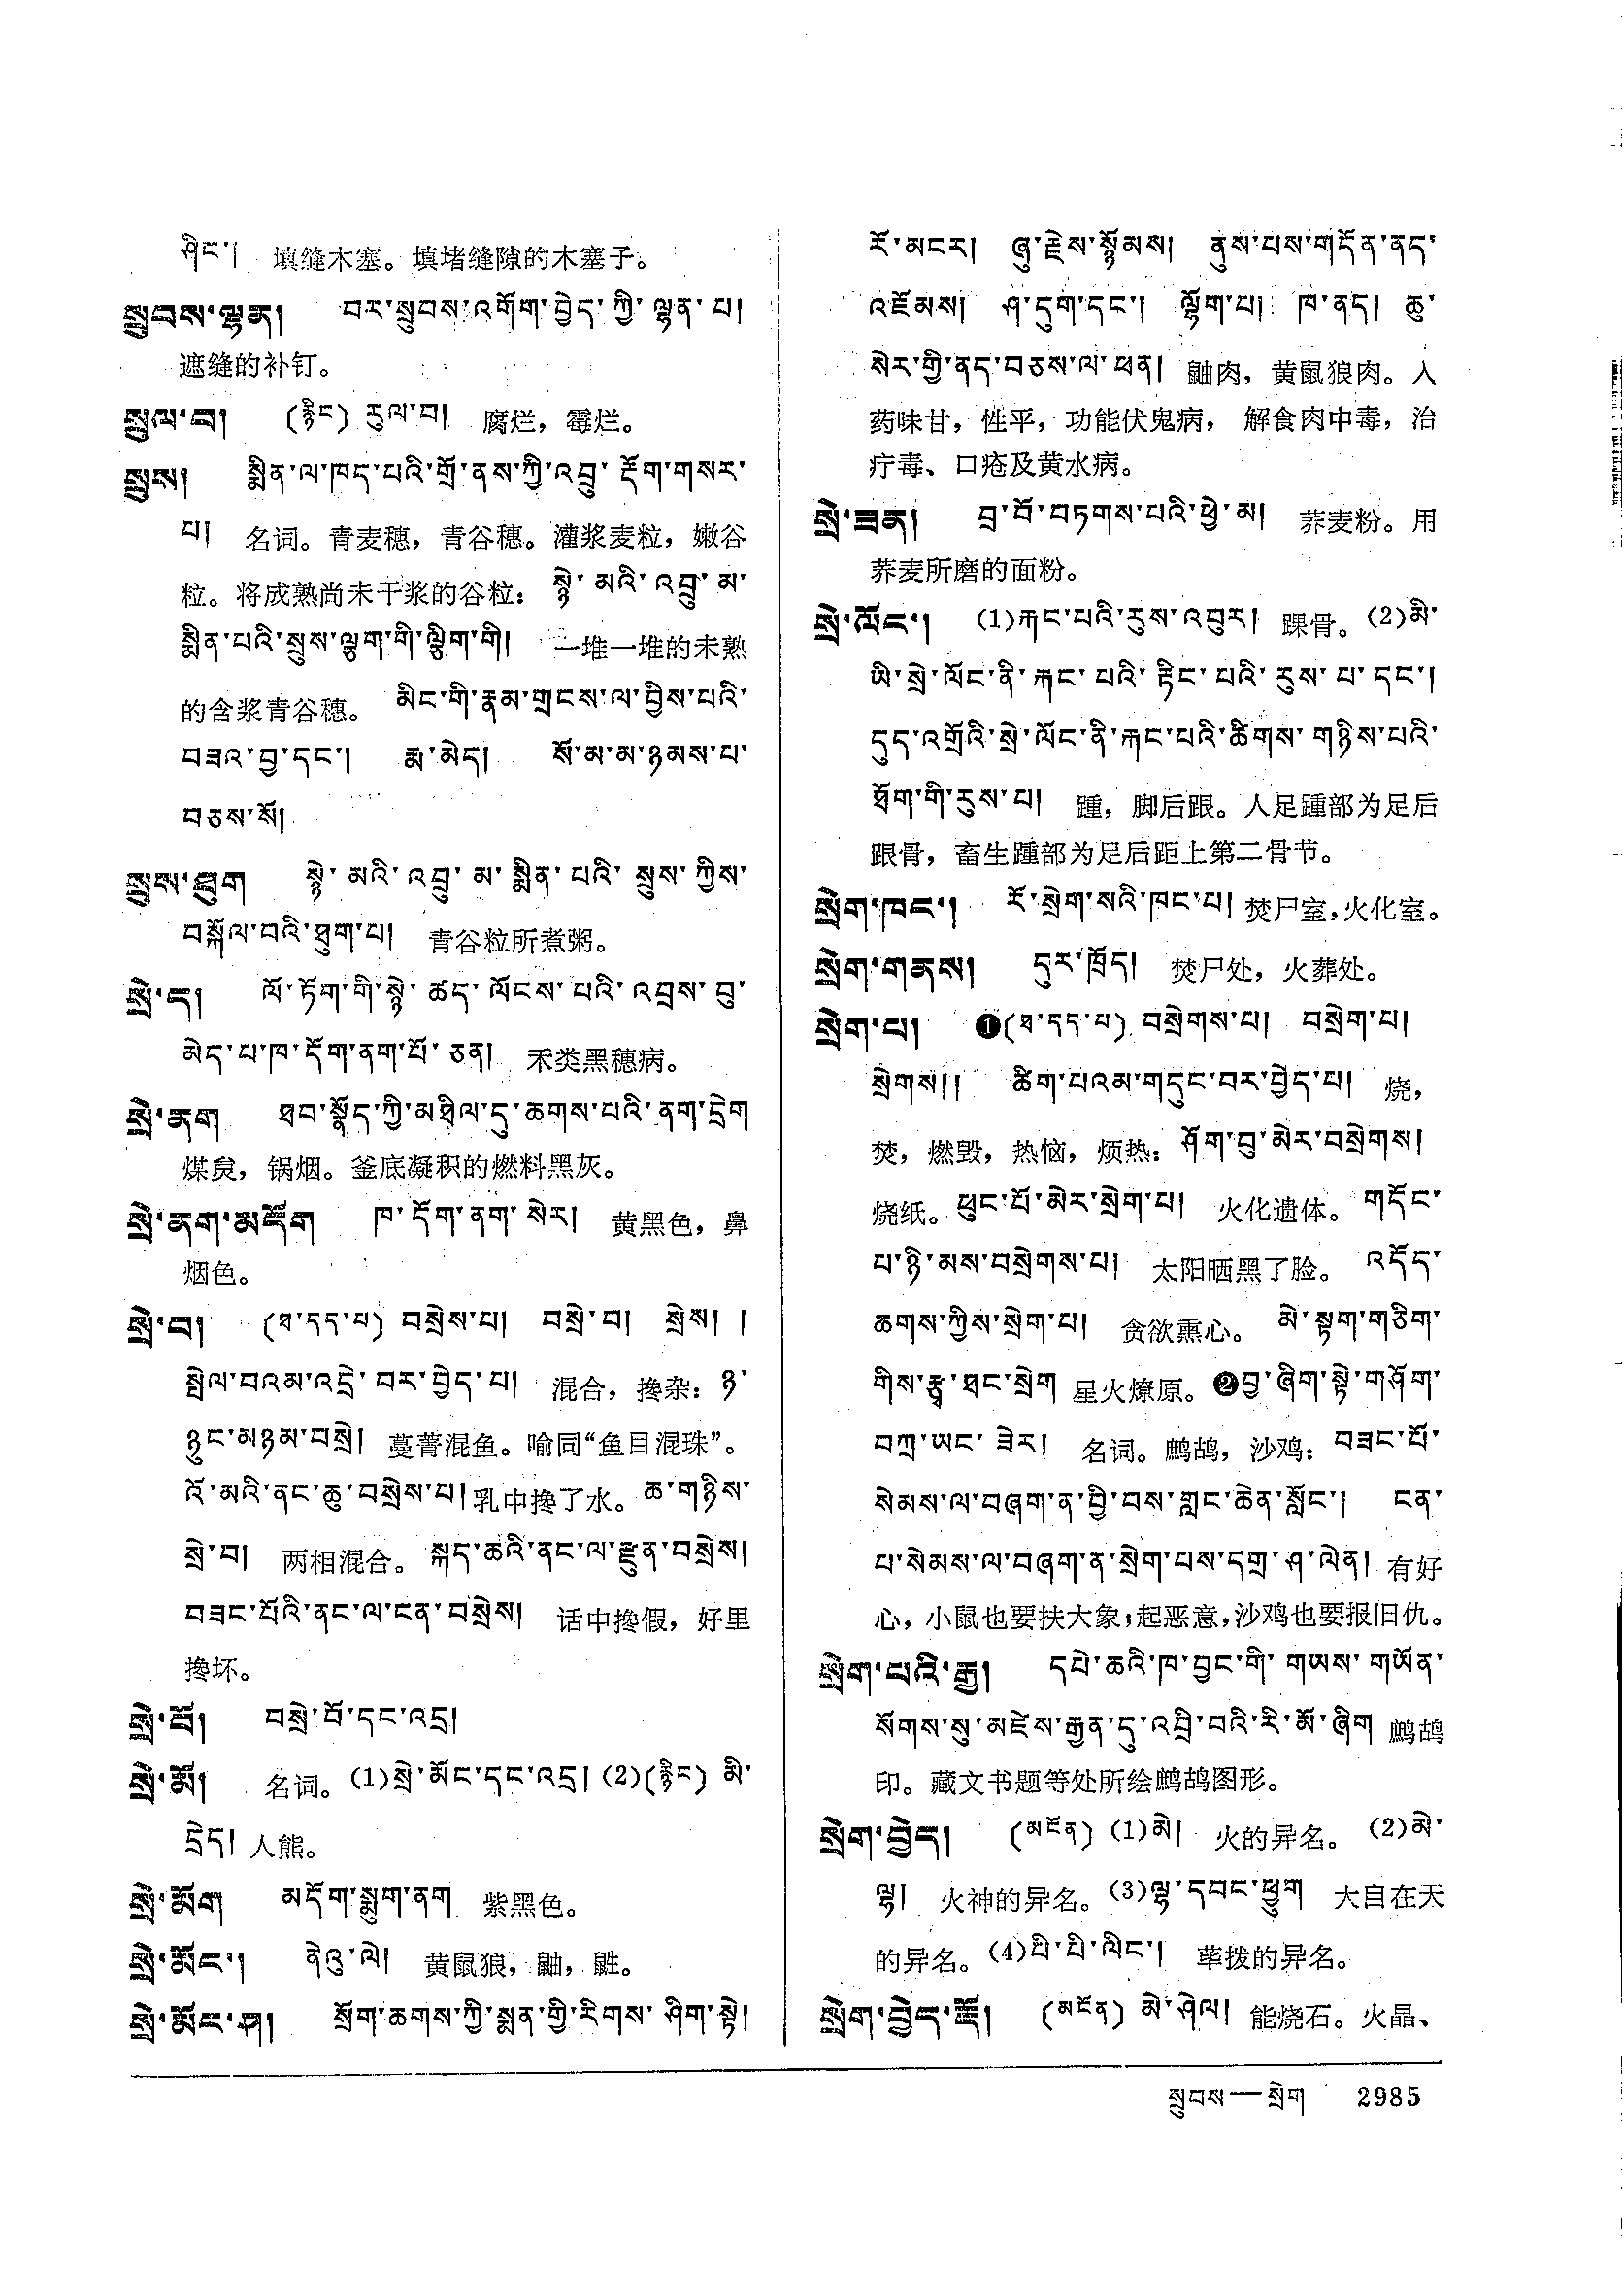 ཤིང་། 填缝木塞。填堵缝隙的木塞子。
སྲུབས་ལྷན། བར་སྲུབས་འགོག་བྱེད་ཀྱི་ལྷན་པ།
遮缝的补钉。
སྲུལ་བ། (རྙིང) རུལ་བ། 腐烂，霉烂。
སྲུས། སྨིན་ལ་ཁད་པའི་གྲོ་ནས་ཀྱི་འབྲུ་རྡོག་གསར་
པ། 名词。青麦穗，青谷穗。灌浆麦粒，嫩谷
粒。将成熟尚未干浆的谷粒：སྙེ་མའི་འབྲུ་མ་
སྨིན་པའི་སྲུས་ལྕུག་གི་ལྕིག་གི། 一堆一堆的未熟
的含浆青谷穗。 མིང་གི་རྣམ་གྲངས་ལ་བྱིས་པའི་
བཟའ་བྱ་དང་། རྨ་མེད། སོ་མ་མ་ཉམས་པ་
བཅས་སོ།
སྲུས་ཐུག སྙེ་མའི་འབྲུ་མ་སྨིན་པའི་སྲུས་ཀྱིས་
བསྐོལ་བའི་ཐུག་པ། 青谷粒所煮粥。
སྲེ་ད། ལོ་ཏོག་གི་སྙེ་ཚད་ལོངས་པའི་འབྲས་བུ་
མེད་པ་ཁ་དོག་ནག་པོ་ཅན། 禾类黑穗病。
སྲེ་ནག ཐབ་སྣོད་ཀྱི་མཐིལ་དུ་ཆགས་པའི་ནག་དྲེག
煤炱，锅烟。釜底凝积的燃料黑灰。
སྲེ་ནག་མདོག ཁ་དོག་ནག་སེར། 黄黑色，鼻
烟色。
སྲེ་བ། (ཐ་དད་པ) བསྲེས་པ། བསྲེ་བ། སྲེས། །
སྤེལ་བའམ་འདྲེ་བར་བྱེད་པ། 混合，搀杂：ཉ་
ཉུང་མཉམ་བསྲེ། 蔓菁混鱼。喻同“鱼目混珠”。
འོ་མའི་ནང་ཆུ་བསྲེས་པ། 乳中搀了水。ཆ་གཉིས་
སྲེ་བ། 两相混合。སྐད་ཆའི་ནང་ལ་རྫུན་བསྲེས།
བཟང་པོའི་ནང་ལ་ངན་བསྲེས། 话中搀假，好里
搀坏。
སྲེ་བོ། བསྲེ་བོ་དང་འདྲ།
སྲེ་མོ། 名词。(1)སྲེ་མོང་དང་འདྲ། (2)(རྙིང) མི་
དྲེད། 人熊。
སྲེ་མོག མདོག་སྨུག་ནག 紫黑色。
སྲེ་མོང་། ནེའུ་ལེ། 黄鼠狼，鼬，鼪。
སྲེ་མོང་ཤ། སྲོག་ཆགས་ཀྱི་སྨན་གྱི་རིགས་ཤིག་སྟེ།
རོ་མངར། ཞུ་རྗེས་སྙོམས། ནུས་པས་གདོན་ནད་
འཇོམས། ཤ་དུག་དང་། ལྷོག་པ། ཁ་ནད། ཆུ་
སེར་གྱི་ནད་བཅས་ལ་ཕན། 鼬肉，黄鼠狼肉。入
药味甘，性平，功能伏鬼病，解食肉中毒，治
疔毒、口疮及黄水病。
སྲེ་ཟན། བྲ་བོ་བཏགས་པའི་ཕྱེ་མ། 荞麦粉。用
荞麦所磨的面粉。
སྲེ་ལོང་། (1)རྐང་པའི་རུས་འབུར། 踝骨。(2)མི་
ཡི་སྲེ་ལོང་ནི་རྐང་པའི་རྟིང་པའི་རུས་པ་དང་།
དུད་འགྲོའི་སྲེ་ལོང་ནི་རྐང་པའི་ཚིགས་གཉིས་པའི་
ཐོག་གི་རུས་པ། 踵，脚后跟。人足踵部为足后
跟骨，畜生踵部为足后距上第二骨节。
སྲེག་ཁང་། རོ་སྲེག་སའི་ཁང་པ། 焚尸室，火化室。
སྲེག་གནས། དུར་ཁྲོད། 焚尸处，火葬处。
སྲེག་པ། ❶(ཐ་དད་པ) བསྲེགས་པ། བསྲེག་པ།
སྲེགས།། ཚིག་པའམ་གདུང་བར་བྱེད་པ། 烧，
焚，燃毁，热恼，烦热：ཤོག་བུ་མེར་བསྲེགས།
烧纸。ཕུང་པོ་མེར་སྲེག་པ། 火化遗体。གདོང་
པ་ཉི་མས་བསྲེགས་པ། 太阳晒黑了脸。 འདོད་
ཆགས་ཀྱིས་སྲེག་པ། 贪欲熏心。 མེ་སྟག་གཅིག་
གིས་རྩྭ་ཐང་སྲེག 星火燎原。❷བྱ་ཞིག་སྟེ་གཤོག་
བཀྲ་ཡང་ཟེར། 名词。鹧鸪，沙鸡：བཟང་པོ་
སེམས་ལ་བཞག་ན་བྱི་བས་གླང་ཆེན་སློང་། ངན་
པ་སེམས་ལ་བཞག་ན་སྲེག་པས་དགྲ་ཤ་ལེན། 有好
心，小鼠也要扶大象；起恶意，沙鸡也要报旧仇。
སྲེག་པའི་རྒྱ། དཔེ་ཆའི་ཁ་བྱང་གི་གཡས་གཡོན་
སོགས་སུ་མཛེས་རྒྱན་དུ་འབྲི་བའི་རི་མོ་ཞིག 鹧鸪
印。藏文书题等处所绘鹧鸪图形。
སྲེག་བྱེད། (མངོན) (1)མེ། 火的异名。 (2)མེ་
ལྷ། 火神的异名。(3)ལྷ་དབང་ཕྱུག 大自在天
的异名。(4)པི་པི་ལིང་། 荜拨的异名。
སྲེག་བྱེད་རྡོ། (མངོན) མེ་ཤེལ། 能烧石。火晶、
སྲུབས—སྲེག 2985